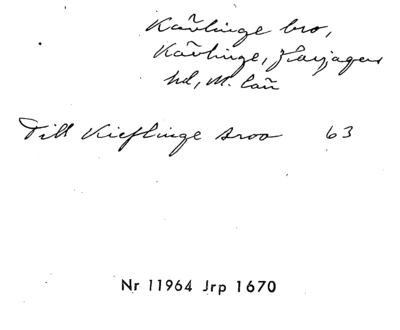 Kävlinge bro,
Kävlinge, Harjagers
hd, M. län
Till Kieflinge broo 63
Nr 11964 Jrp 1670